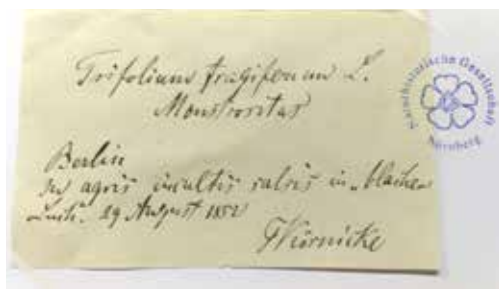 Trifolium fragiferum L.
Monstrositas
Berlin
in agris incultis salsis in
Luch. 29 August 1852
FKörnicke
Naturhistorische Gesellschaft
Nürnberg